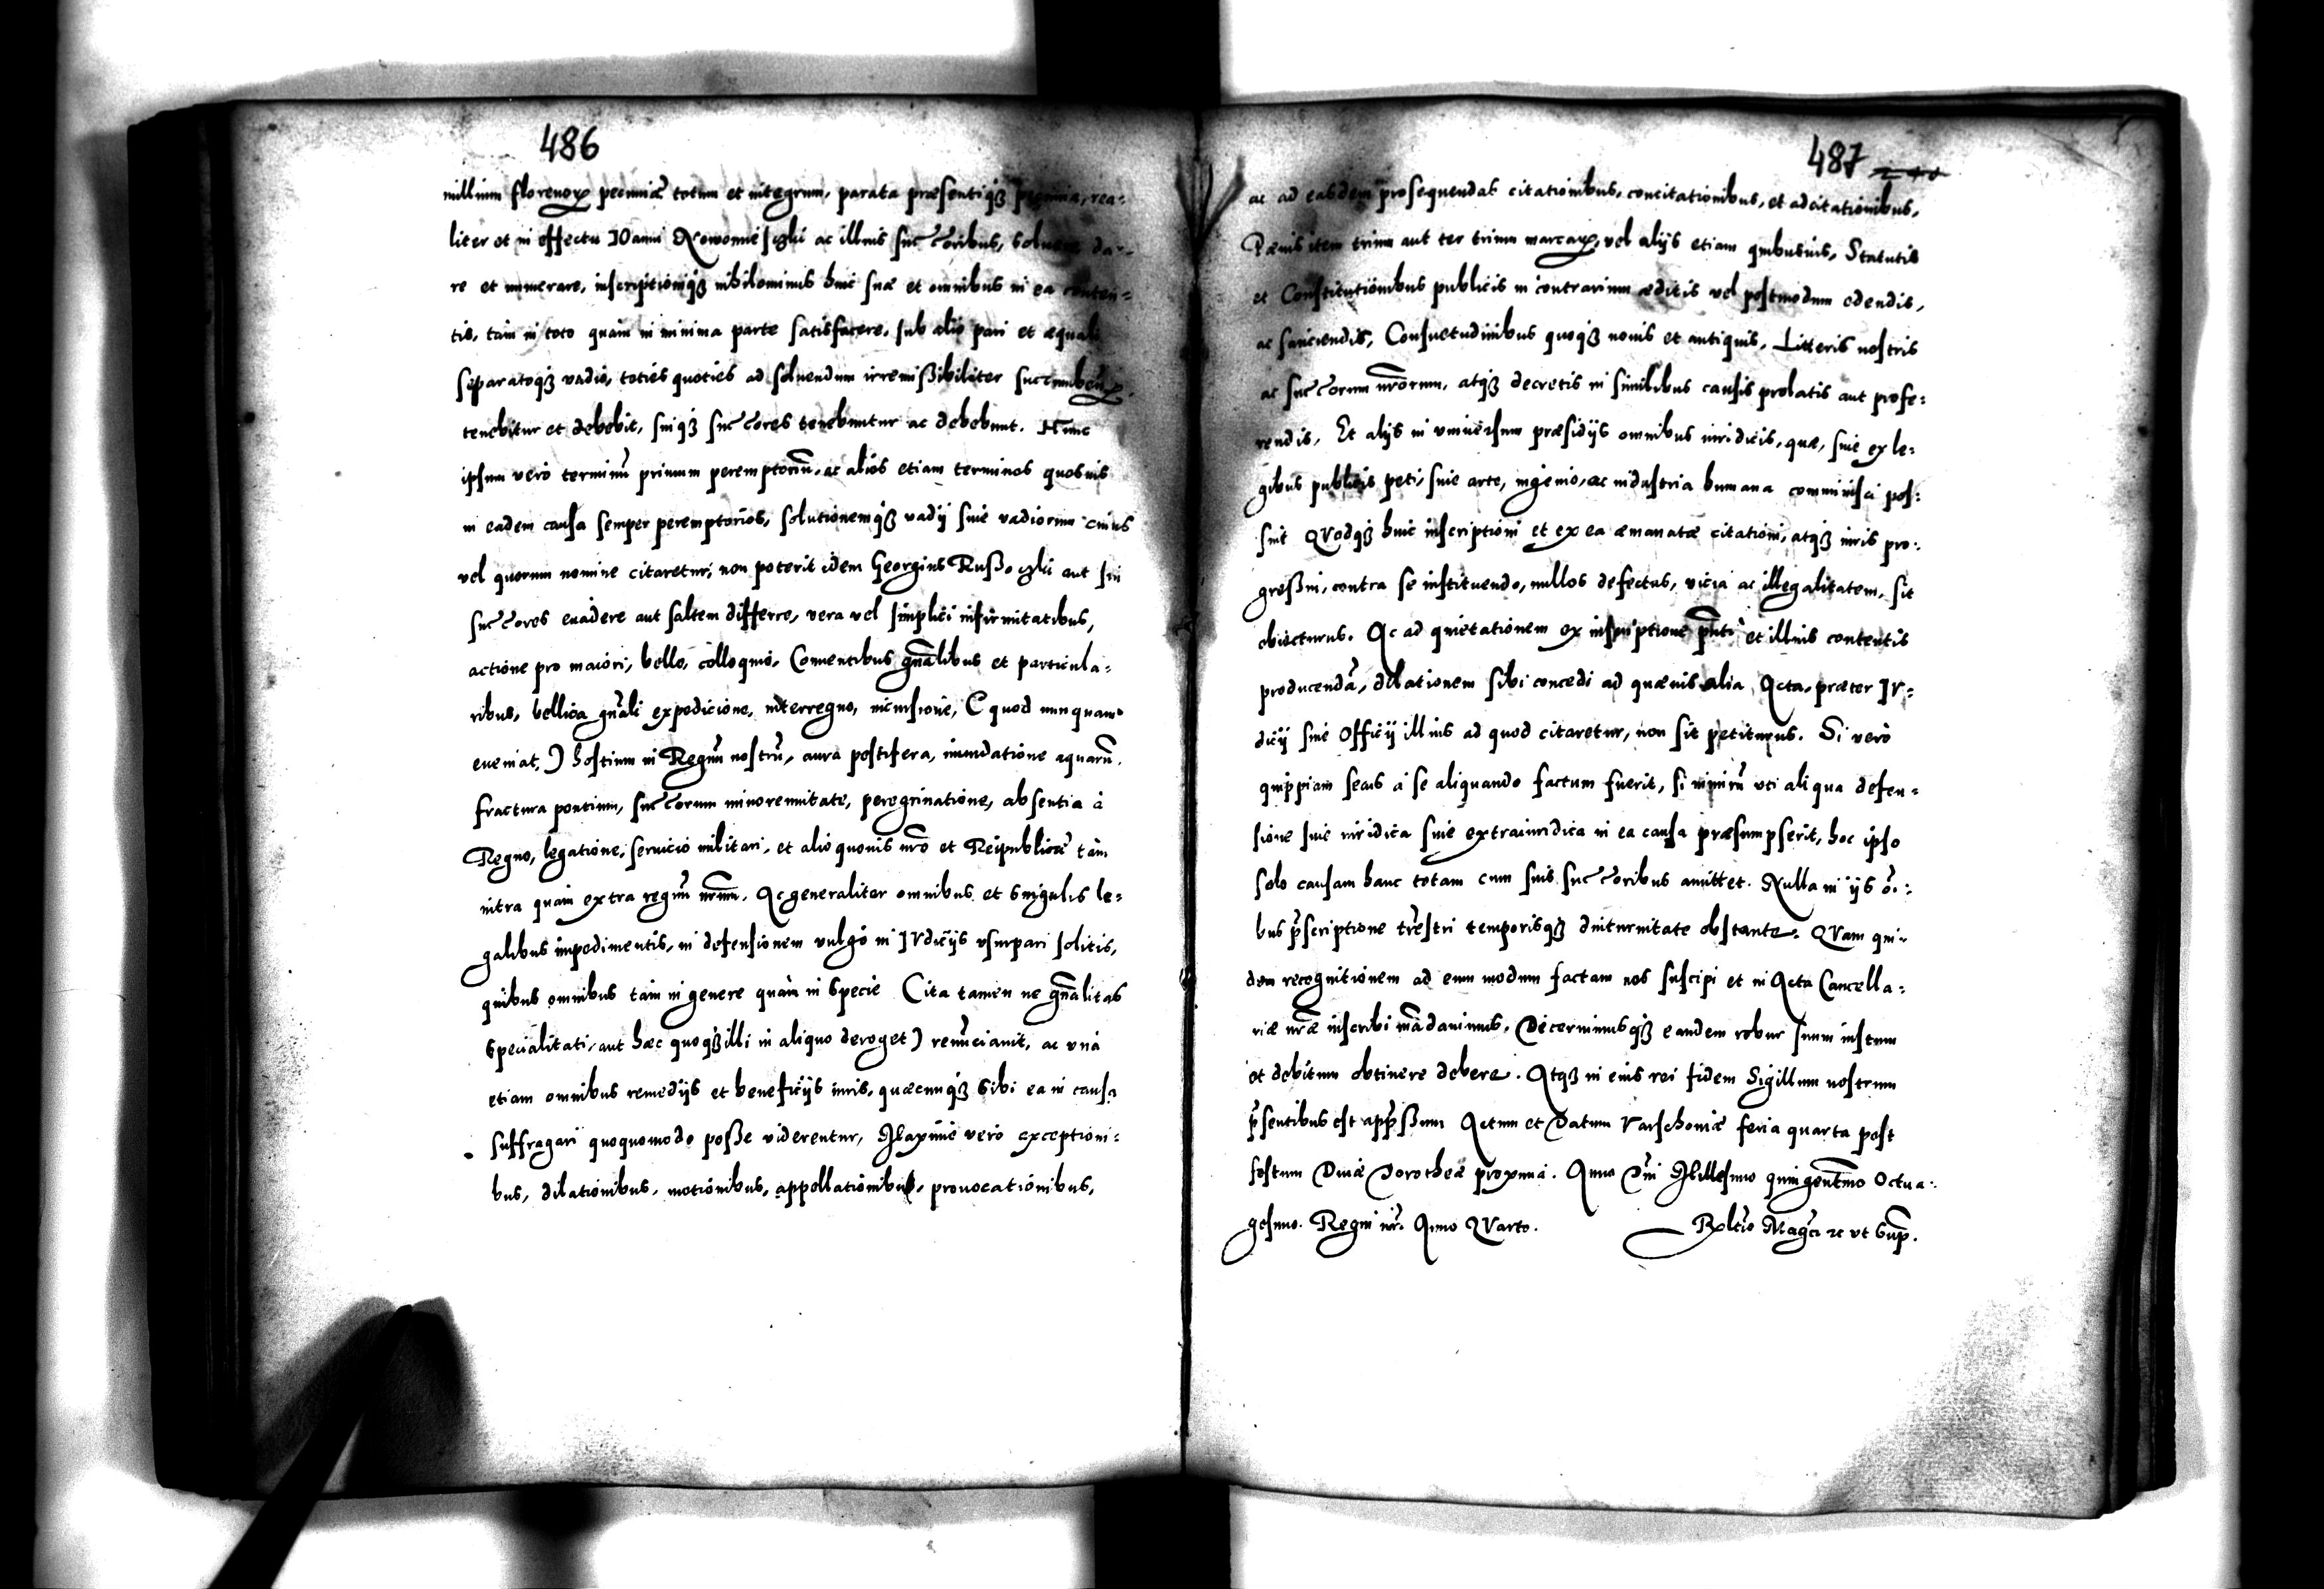 486
millium florenorum pecuniæ totum et integrum, parata præsentiq3 pecunia, rea=
liter et in effectu Ioanni Nowomieiski ac illius succoribus, soluere da=
re et numerare, inscriptioniq3 nihilominus huic suæ et omnibus in ea conten=
tis, tam in toto quam in minima parte satisfacere, sub alio pari et æquali
separatoq3 vadio, toties quoties ad soluendum irremißibiliter
tenebitur et debebit, suiq3 succores tenebuntur ac debebunt. Hunc
ipsum vero terminũ primum peremptoriũ, ac alios etiam terminos quosuis
in eadem causa semper peremptorios, solutionemq3 vadij siue vadiorum cuius
vel quorum nomine citaretur, non poterit idem Georgius aut sui
succores euadere aut saltem differre, vera vel simplici infirmitatibus,
actione pro maiori, bello, colloquio, Conuentibus gñalibus et particula=
ribus, bellica gñali expedicione, interregno, incursione, ( quod nunquam
eueniat, ) hostium in Regnũ nostrũ, aura pestifera, inundatione aquarũ,
fractura pontium, succorum minorennitate, peregrinatione, absentia à
Regno, legatione, seruicio militari, et alio quouis nrõ et Reipublicæ tam
intra quam extra regnũ nrũm. Ac generaliter omnibus et singulis le=
galibus impedimentis, in defensionem vulgo in IVdicijs vsurpari solitis,
quibus omnibus tam in genere quàm in specie (ita tamen ne gñalitas
specialitati, aut hæc quoq3 illi in aliquo deroget) renũciauit, ac vnà
etiam omnibus remedijs et beneficijs iuris, quæcunq3 sibi ea in causa
suffragari quoquomodo poße viderentur, Maxime vero exceptioni=
bus, dilationibus, motionibus, appellationibus, prouocationibus,
487
ac ad easdem prosequendas citationibus, concitationibus, et adcitationibus,
Pænis item trium aut ter trium marcarum, vel alijs etiam quibusuis, Statutis
et Constitutionibus publicis in contrarium æditis vel postmodum edendis,
ac sanciendis, Consuetudinibus quoq3 nouis et antiquis, Litteris nostris
ac succorum nrõrum, atq3 decretis in similibus causis prolatis aut profe=
rendis, Et alijs in vniuersum præsidijs omnibus iuridicis, quæ, siue ex le=
gibus publicis peti, siue arte, ingenio, ac industria humana comminisci pos=
sint QVodq3 huic inscriptioni et ex ea æmanatæ citationi, atq3 iuris pro=
greßui, contra se instituendo, nullos defectus, vicia ac illegalitatem, sit
obiecturus. Ac ad quietationem ex inscriptione pñti et illius contentis
producendã, dilationem sibi concedi ad quæuis alia Acta, præter IV=
dicij siue Officij illius ad quod citaretur, non sit petiturus. Si verò
quippiam secus à se aliquando factum fuerit, si nimirũ vti aliqua defen=
sione siue iuridica siue extraiuridica in ea causa præsumpserit, hoc ipso
solo causam hanc totam cum suis succoribus amittet. Nulla in ijs õ=
bus p̃scriptione tr̃estri temporisq3 diuturnitate obstante. QVam qui=
dem recognitionem ad eum modum factam nos suscipi et in Acta Cancella=
riæ nrẽ inscribi mãdauimus, Decernimusq3 eandem robur suum iustum
et debitum obtinere debere. Atq3 in eius rei fidem Sigillum nostrum
p̃sentibus est app̃ßum Actum et Datum Varschouiæ feria quarta post
festum Diuæ Dorotheæ proxima. Anno Dñi Millesimo quingentẽmo Octua=
gesimo. Regni nri Anno QVarto. Rel̃tio Magci 2c vt sup̃.